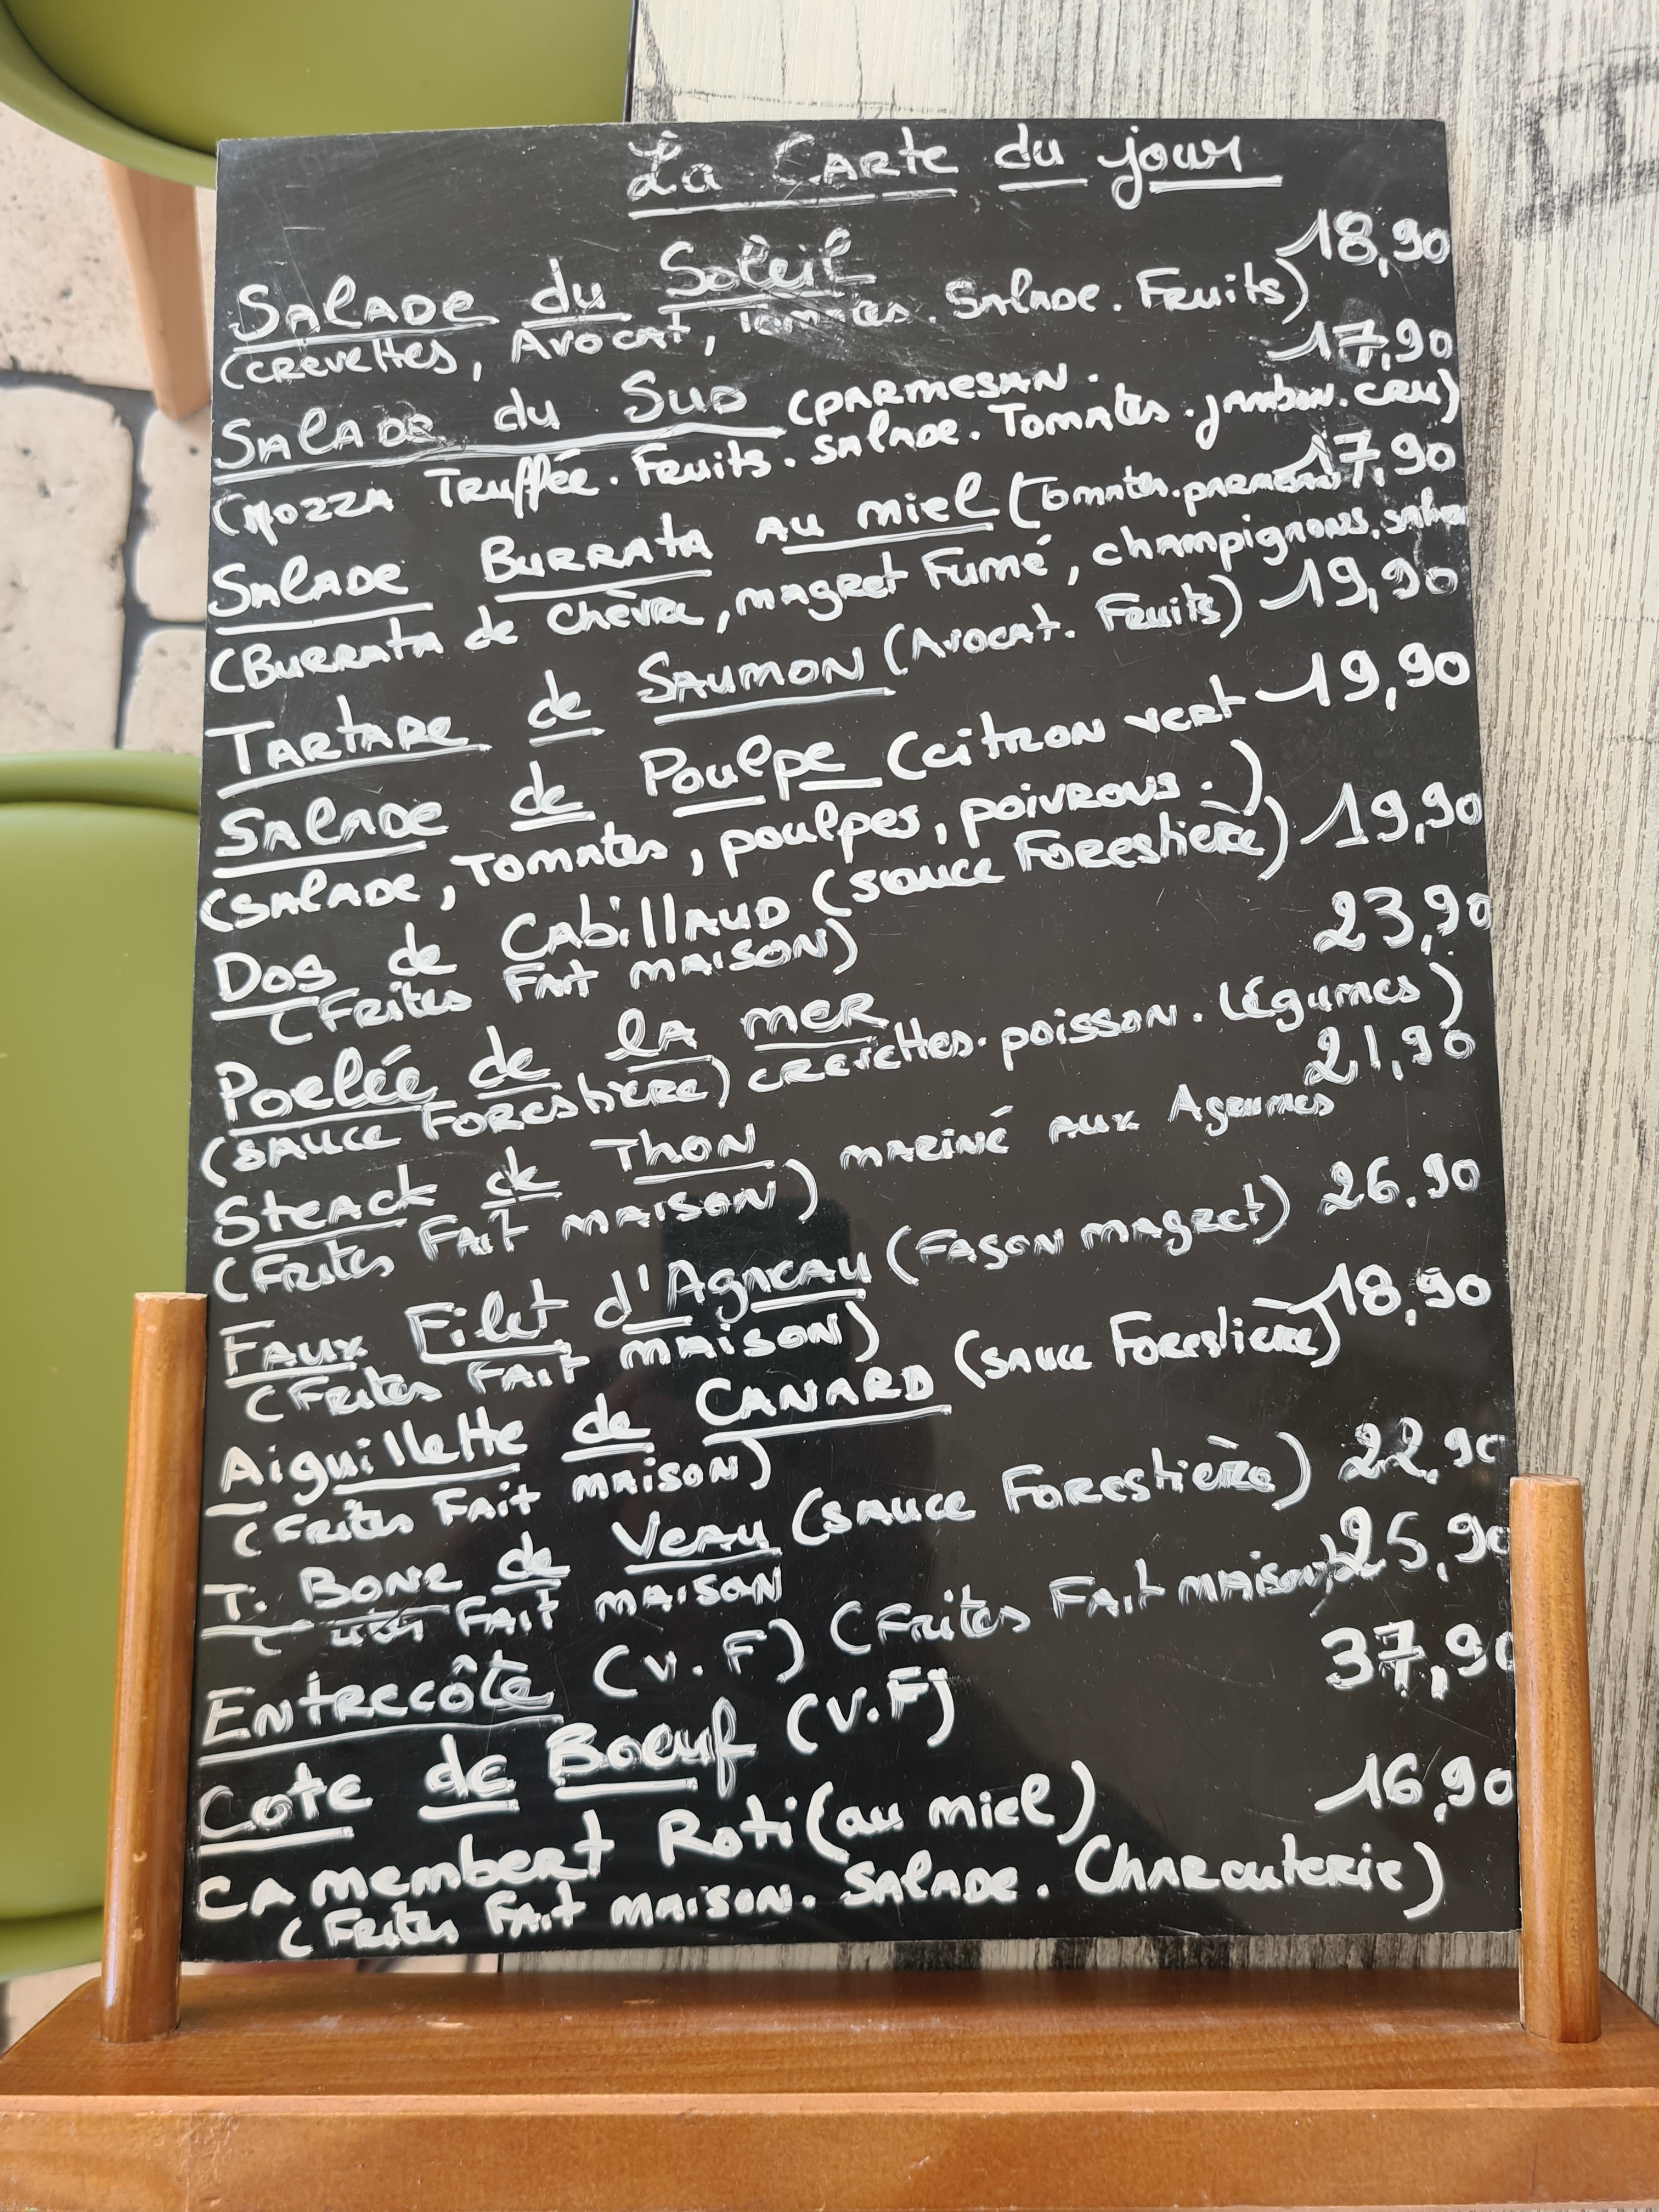 La Carte du jour
Salade du Soleil 18,90
(crevettes, Avocat, Tomates. Salade. Fruits)
Salade du Sud (parmesan. 17,90
(Mozza Truffée. Fruits. Salade. Tomates. jambon. cru)
Salade Burrata au miel (Tomates. parmesan 17,90
(Burrata de chèvre, magret Fumé, champignons, salade
Tartare de Saumon (Avocat. Fruits) 19,90
Salade de Poulpe (citron vert 19,90
(salade, Tomates, poulpes, poivrons.)
Dos de Cabillaud (sauce Forestière) 19,90
(Frites Fait maison)
Poelée de la mer 23,90
(sauce Forestière) crevettes. poisson. Légumes)
Steack de Thon mariné aux Agrumes 21,90
(Frites Fait maison)
Faux Filet d'Agneau (Fason magret) 26.90
(Frites Fait maison)
Aiguillette de Canard (sauce Forestière) 18,90
(Frites Fait maison)
T. Bone de Veau (sauce Forestière) 22,90
( Fait maison
Entrecôte (V.F) (Frites Fait maison) 25,90
Cote de Boeuf (V.F) 37,90
Camembert Roti (au miel) 16,90
(Frites Fait maison. Salade. Charcuterie)